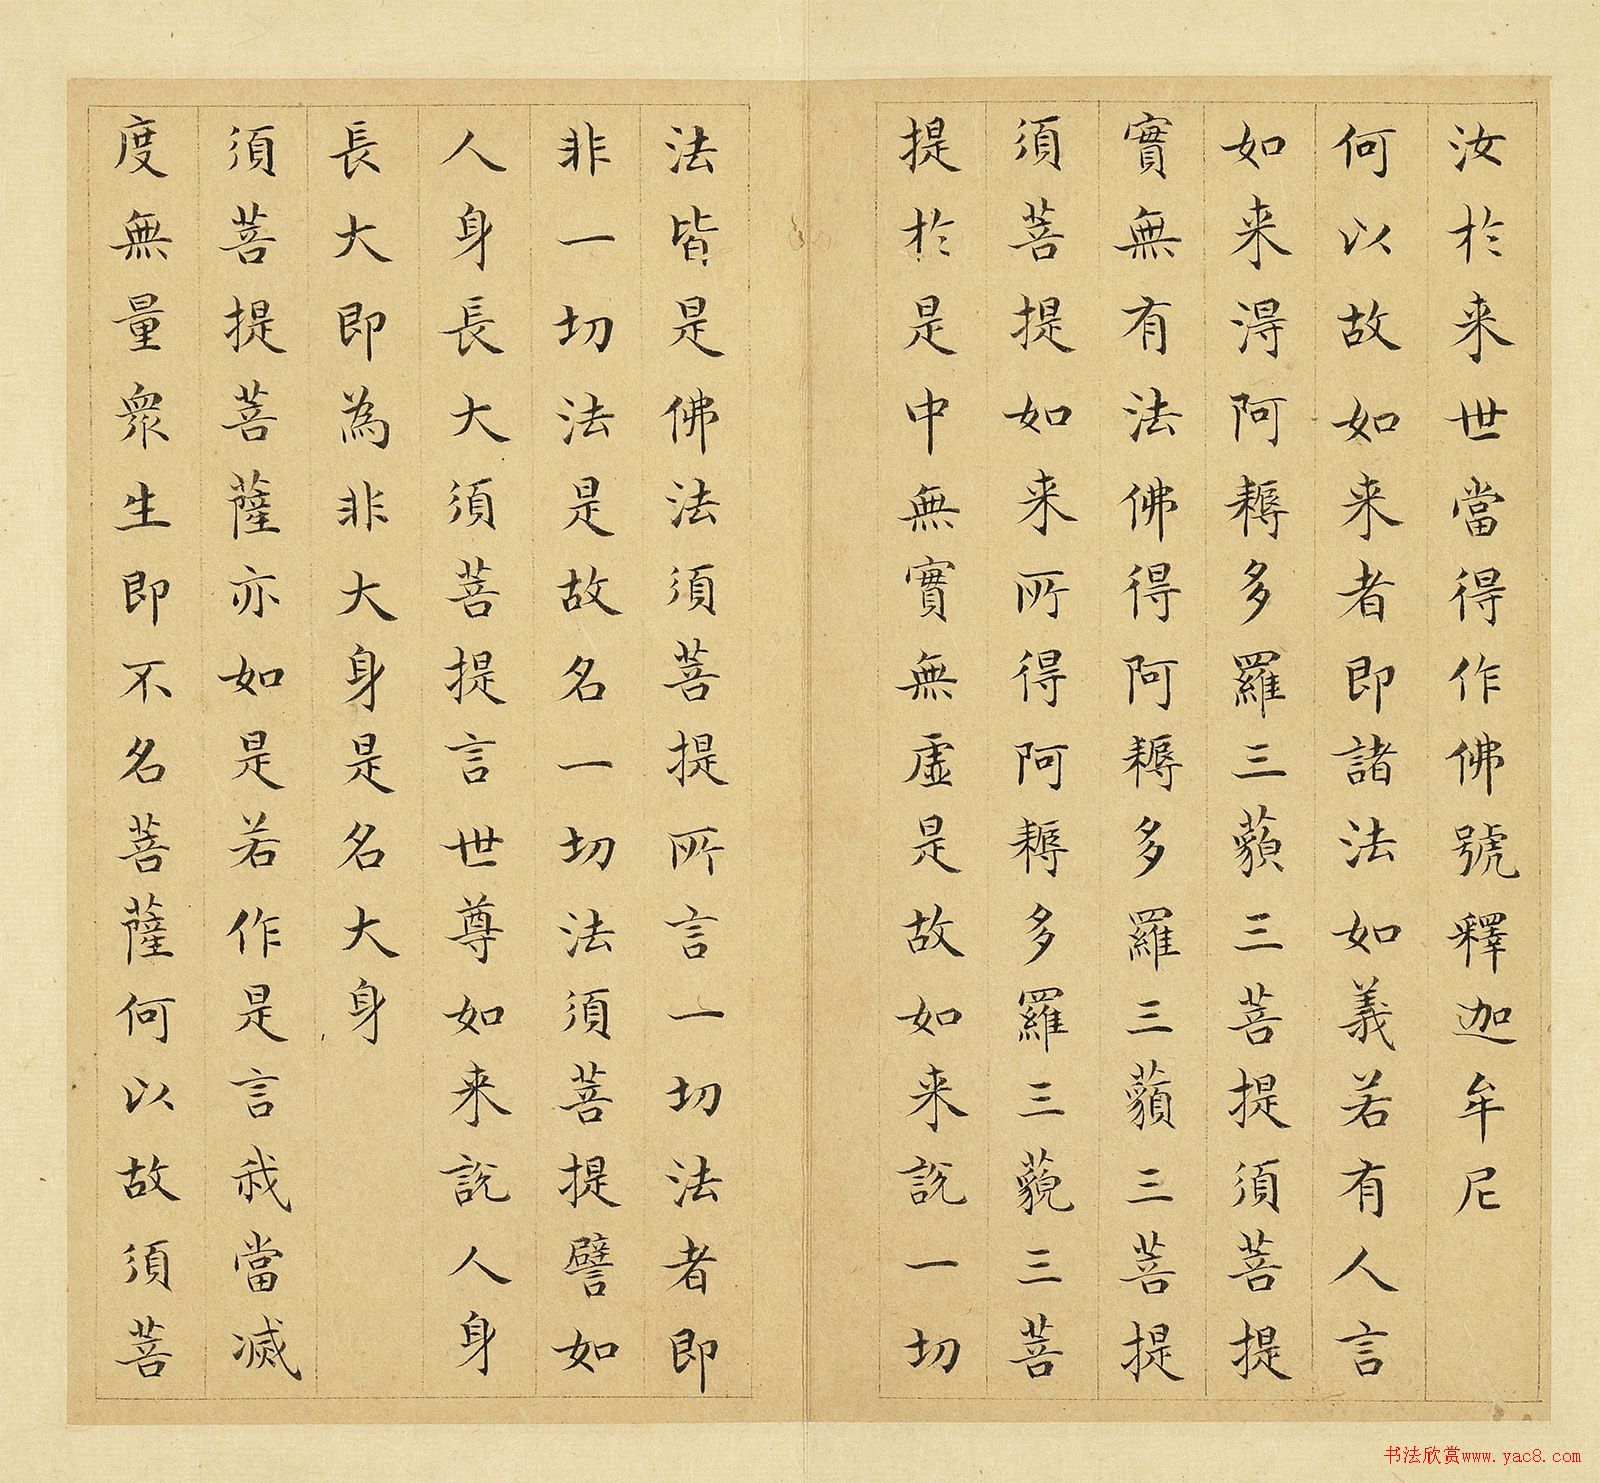 汝於来世當得作佛號釋迦牟尼
何以故如来者即諸法如義若有人言
如来淂阿耨多羅三藐三菩提須菩提
實無有法佛得阿耨多羅三藐三菩提
須菩提如来所得阿耨多羅三藐三菩
提於是中無實無虛是故如来說一切
法皆是佛法須菩提所言一切法者即
非一切法是故名一切法須菩提譬如
人身長大須菩提言世尊如来說人身
長大即為非大身是名大身
須菩提菩薩亦如是若作是言我當滅
度無量眾生即不名菩薩何以故須菩
书法欣赏www.yac8.com